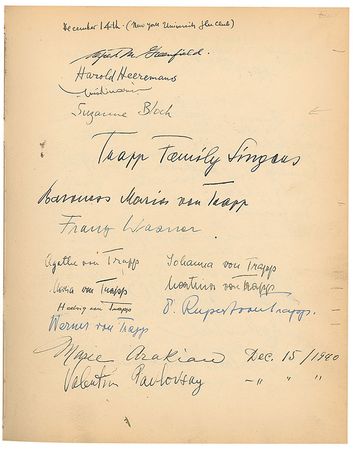 December 14th. (New York University Glee Club)
Alfred M. Greenfield.
Harold Heeremans
Suzanne Bloch
Trapp Family Singers
Baroness Maria von Trapp
Franz Wasner.
Agathe von Trapp Johanna von Trapp
Maria von Trapp Martina von Trapp
Hedwig von Trapp D. Rupert von Trapp.
Werner von Trapp
Marie Dec. 15/1940
Valentin Pavlovsky -"- " "